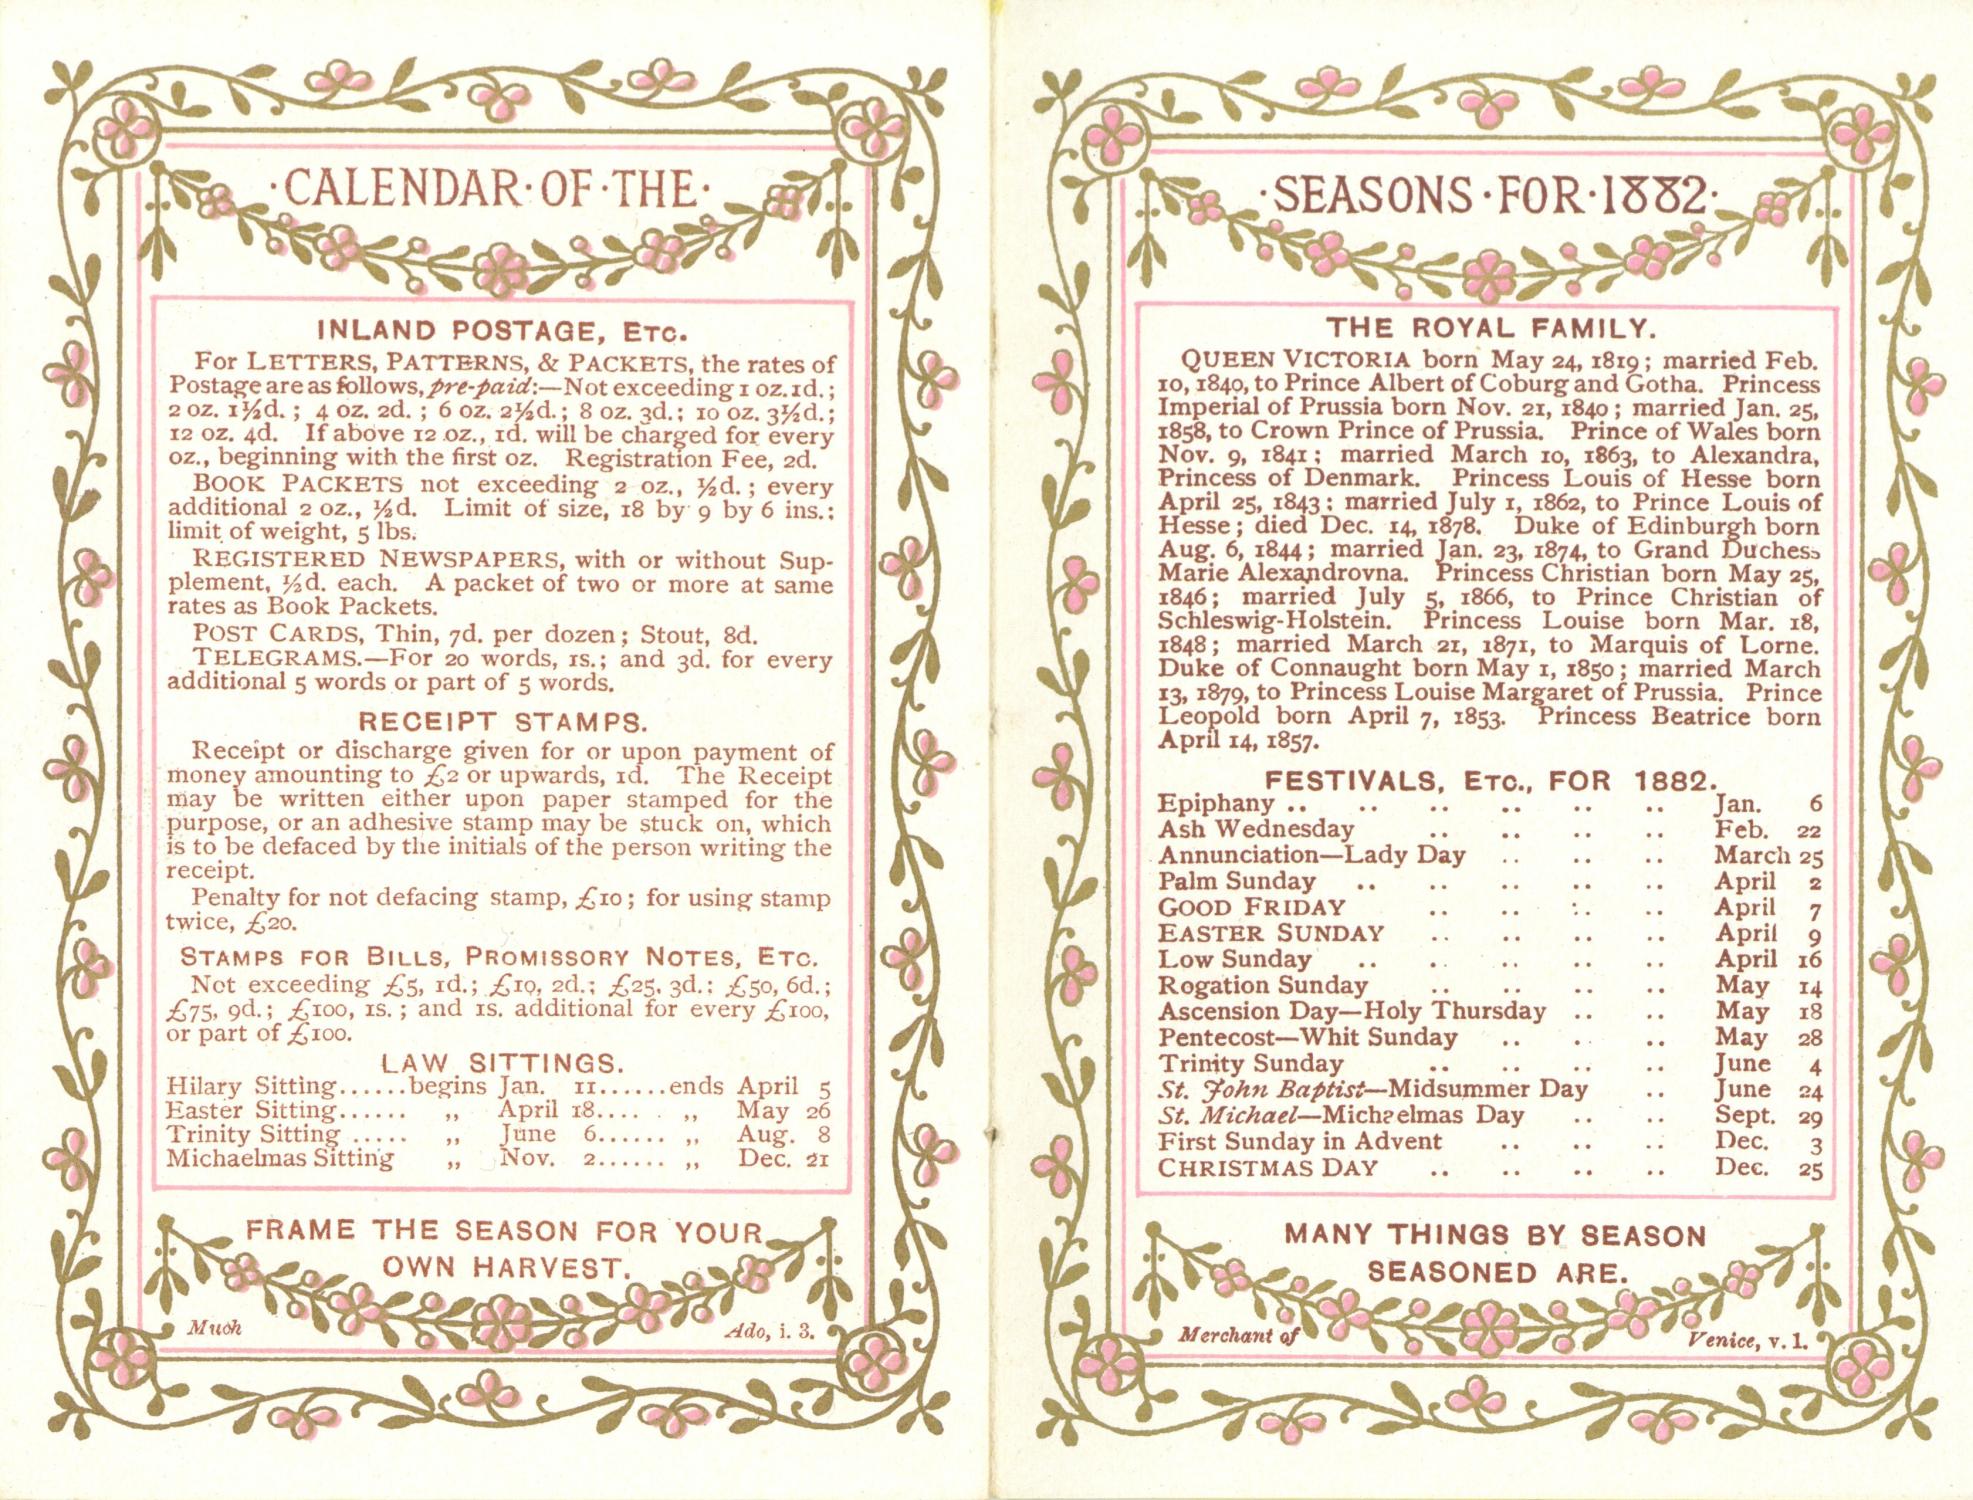 ·CALENDAR·OF·THE·
INLAND POSTAGE, ETC.
For LETTERS, PATTERNS, & PACKETS, the rates of
Postage are as follows, pre-paid:—Not exceeding 1 oz. 1d.;
2 oz. 1½d.; 4 oz. 2d.; 6 oz. 2½d.; 8 oz. 3d.; 10 oz. 3½d.;
12 oz. 4d. If above 12 oz., 1d. will be charged for every
oz., beginning with the first oz. Registration Fee, 2d.
BOOK PACKETS not exceeding 2 oz., ½d.; every
additional 2 oz., ½d. Limit of size, 18 by 9 by 6 ins.:
limit of weight, 5 lbs.
REGISTERED NEWSPAPERS, with or without Sup-
plement, ½d. each. A packet of two or more at same
rates as Book Packets.
POST CARDS, Thin, 7d. per dozen; Stout, 8d.
TELEGRAMS.—For 20 words, 1s.; and 3d. for every
additional 5 words or part of 5 words.
RECEIPT STAMPS.
Receipt or discharge given for or upon payment of
money amounting to £2 or upwards, 1d. The Receipt
may be written either upon paper stamped for the
purpose, or an adhesive stamp may be stuck on, which
is to be defaced by the initials of the person writing the
receipt.
Penalty for not defacing stamp, £10; for using stamp
twice, £20.
STAMPS FOR BILLS, PROMISSORY NOTES, ETC.
Not exceeding £5, 1d.; £10, 2d.; £25, 3d.; £50, 6d.;
£75, 9d.; £100, 1s.; and 1s. additional for every £100,
or part of £100.
LAW SITTINGS.
Hilary Sitting......begins Jan. 11......ends April 5
Easter Sitting...... ,, April 18.... ,, May 26
Trinity Sitting ..... ,, June 6...... ,, Aug. 8
Michaelmas Sitting ,, Nov. 2...... ,, Dec. 21
FRAME THE SEASON FOR YOUR
OWN HARVEST.
Much Ado, i. 3.
·SEASONS·FOR·1882·
THE ROYAL FAMILY.
QUEEN VICTORIA born May 24, 1819; married Feb.
10, 1840, to Prince Albert of Coburg and Gotha. Princess
Imperial of Prussia born Nov. 21, 1840; married Jan. 25,
1858, to Crown Prince of Prussia. Prince of Wales born
Nov. 9, 1841; married March 10, 1863, to Alexandra,
Princess of Denmark. Princess Louis of Hesse born
April 25, 1843; married July 1, 1862, to Prince Louis of
Hesse; died Dec. 14, 1878. Duke of Edinburgh born
Aug. 6, 1844; married Jan. 23, 1874, to Grand Duchess
Marie Alexandrovna. Princess Christian born May 25,
1846; married July 5, 1866, to Prince Christian of
Schleswig-Holstein. Princess Louise born Mar. 18,
1848; married March 21, 1871, to Marquis of Lorne.
Duke of Connaught born May 1, 1850; married March
13, 1879, to Princess Louise Margaret of Prussia. Prince
Leopold born April 7, 1853. Princess Beatrice born
April 14, 1857.
FESTIVALS, ETC., FOR 1882.
Epiphany .. .. .. .. .. .. Jan. 6
Ash Wednesday .. .. .. .. Feb. 22
Annunciation—Lady Day .. .. .. March 25
Palm Sunday .. .. .. .. .. April 2
GOOD FRIDAY .. .. .. .. April 7
EASTER SUNDAY .. .. .. .. April 9
Low Sunday .. .. .. .. .. April 16
Rogation Sunday .. .. .. .. May 14
Ascension Day—Holy Thursday .. .. May 18
Pentecost—Whit Sunday .. .. .. May 28
Trinity Sunday .. .. .. .. June 4
St. John Baptist—Midsummer Day .. June 24
St. Michael—Michaelmas Day .. .. Sept. 29
First Sunday in Advent .. .. .. Dec. 3
CHRISTMAS DAY .. .. .. .. Dec. 25
MANY THINGS BY SEASON
SEASONED ARE.
Merchant of Venice, v. 1.